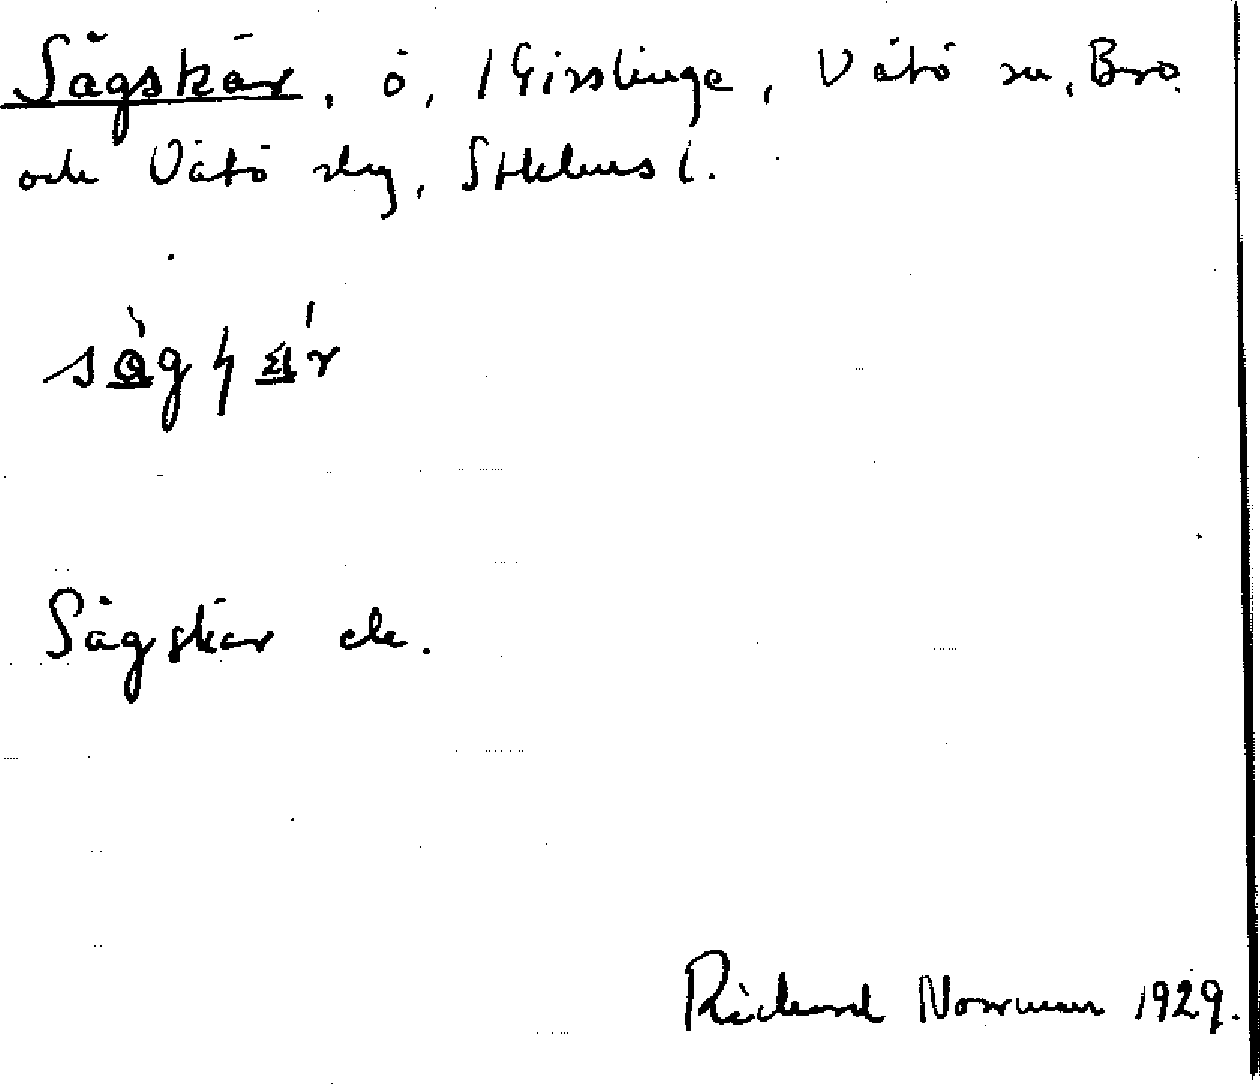 Sågskär, ö, / Gisslinge, Vätö sn, Bro
och Vätö slg, Sthlms l.
Sågskär ek.
Richard Norrman 1929.